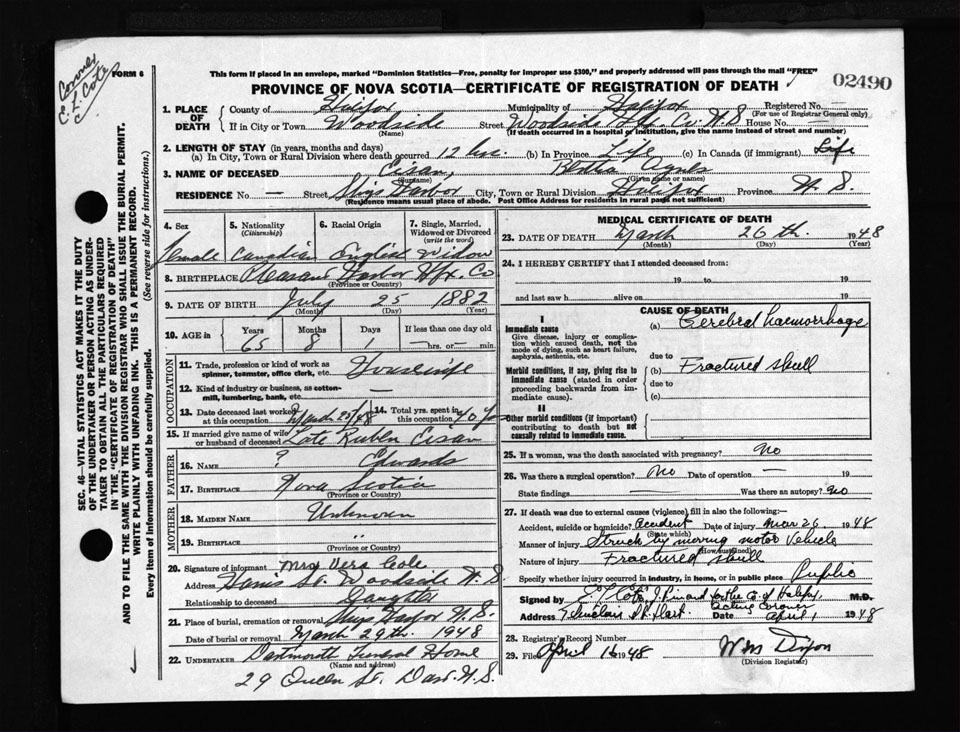 Coroner
E. L. Cote
FORM 6
This form if placed in an envelope, marked "Dominion Statistics—Free, penalty for improper use $300," and properly addressed will pass through the mail "FREE"
02490
PROVINCE OF NOVA SCOTIA—CERTIFICATE OF REGISTRATION OF DEATH
1. PLACE OF DEATH
County of Halifax Municipality of Halifax Registered No. —
(For use of Registrar General only)
If in City or Town Woodside Street Woodside Hfx. Co. N.S House No. —
(Name) (If death occurred in a hospital or institution, give the name instead of street and number)
2. LENGTH OF STAY (in years, months and days)
(a) In City, Town or Rural Division where death occurred 12 (b) In Province Life (c) In Canada (if immigrant) Life
3. NAME OF DECEASED Eisan, Bertha Agnes
(Surname) (Given name or names)
RESIDENCE No. — Street Ships Harbor City, Town or Rural Division Halifax Province N.S.
(Residence means usual place of abode. Post Office Address for residents in rural parts not sufficient)
4. Sex
5. Nationality
(Citizenship)
6. Racial Origin
7. Single, Married, Widowed or Divorced
(write the word)
Female Canadian English Widow
8. BIRTHPLACE Pleasant Harbor Hfx. Co
(Province or Country)
9. DATE OF BIRTH July 25 1882
(Month) (Day) (Year)
10. AGE in Years Months Days If less than one day old
65 8 1 — hrs. or — min.
OCCUPATION
11. Trade, profession or kind of work as spinner, teamster, office clerk, etc. Housewife
12. Kind of industry or business, as cotton-mill, lumbering, bank, etc. —
13. Date deceased last worked at this occupation March 25/48
14. Total yrs. spent in this occupation 40 yrs
15. If married give name of wife or husband of deceased Late Ruben Eisan
FATHER
16. NAME ? Edwards
17. BIRTHPLACE Nova Scotia
(Province or Country)
MOTHER
18. MAIDEN NAME Unknown
19. BIRTHPLACE "
(Province or Country)
20. Signature of informant Mrs Vera Cole
Address St. Woodside N.S
Relationship to deceased Daughter
21. Place of burial, cremation or removal Ships Harbor N.S.
Date of burial or removal March 29th. 1948
22. UNDERTAKER Dartmouth Funeral Home
(Name and address)
29 Queen St. Dart. N.S.
MEDICAL CERTIFICATE OF DEATH
23. DATE OF DEATH March 26th. 1948
(Month) (Day) (Year)
24. I HEREBY CERTIFY that I attended deceased from:
19 to 19
and last saw h alive on 19
CAUSE OF DEATH
I
Immediate cause
Give disease, injury or complication which caused death, not the mode of dying, such as heart failure, asphyxia, asthenia, etc.
(a) Cerebral haemorrhage
due to
Morbid conditions, if any, giving rise to immediate cause (stated in order proceeding backwards from immediate cause).
(b) Fractured skull
due to
(c)
II
Other morbid conditions (if important) contributing to death but not causally related to immediate cause.
25. If a woman, was the death associated with pregnancy? No
26. Was there a surgical operation? No Date of operation — 19
State findings — Was there an autopsy? No
27. If death was due to external causes (violence) fill in also the following:
Accident, suicide or homicide? Accident Date of injury Mar 26, 1948
(State which)
Manner of injury Struck by moving motor vehicle
(How sustained)
Nature of injury Fractured skull
Specify whether injury occurred in industry, in home, or in public place Public
Signed by E. L. Cote, J.P. in and for the Co. of Halifax M.D.
Acting Coroner
Address St. Dart Date April 1 1948
28. Registrar's Record Number
29. Filed April 16 1948 Wm Dixon
(Division Registrar)
SEC. 46—VITAL STATISTICS ACT MAKES IT THE DUTY OF THE UNDERTAKER OR PERSON ACTING AS UNDERTAKER TO OBTAIN ALL THE PARTICULARS REQUIRED IN THE "CERTIFICATE OF REGISTRATION OF DEATH"
AND TO FILE THE SAME WITH THE DIVISION REGISTRAR WHO SHALL ISSUE THE BURIAL PERMIT.
WRITE PLAINLY WITH UNFADING INK. THIS IS A PERMANENT RECORD.
Every item of information should be carefully supplied. (See reverse side for instructions.)